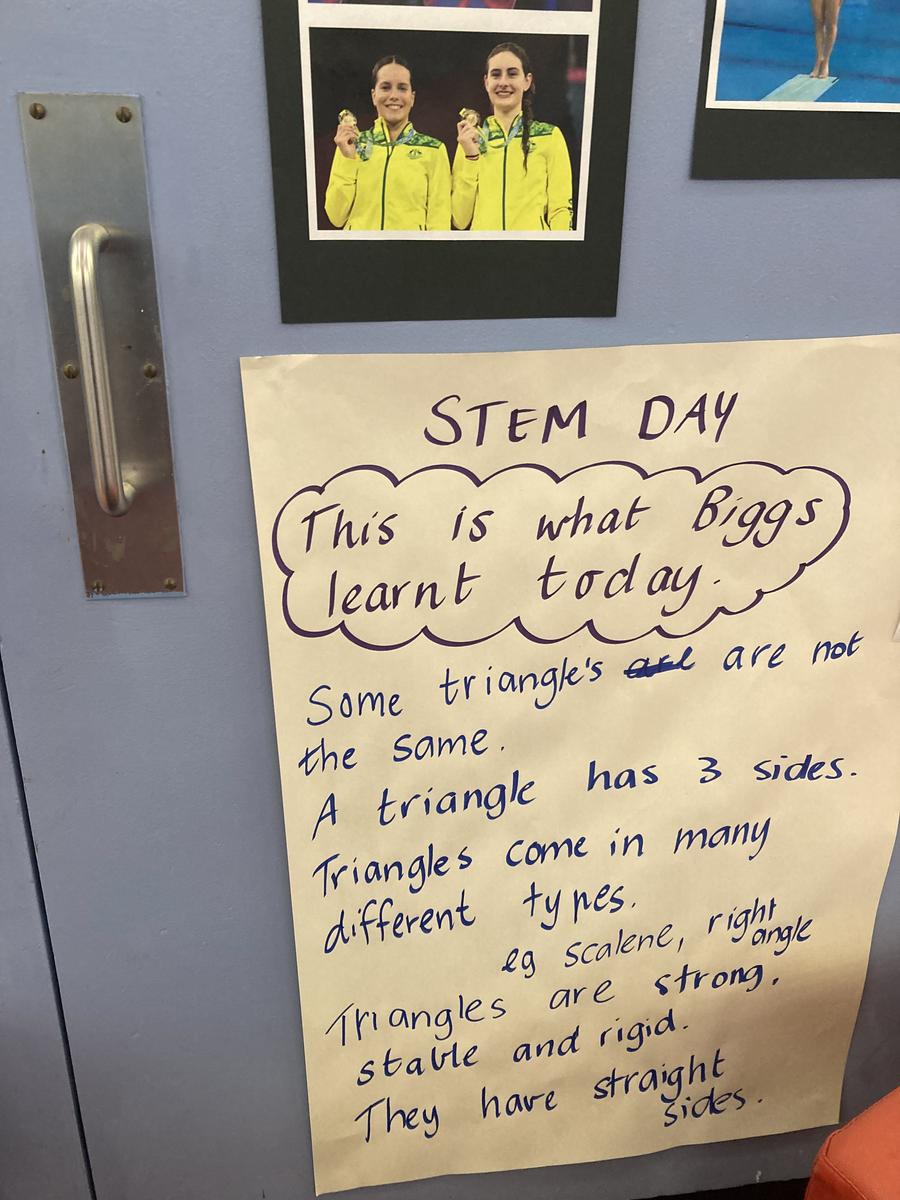 STEM DAY
This is what Biggs
learnt today.
Some triangle's are are not
the same.
A triangle has 3 sides.
Triangles come in many
different types.
eg scalene, right
angle
Triangles are strong,
stable and rigid.
They have straight
sides.